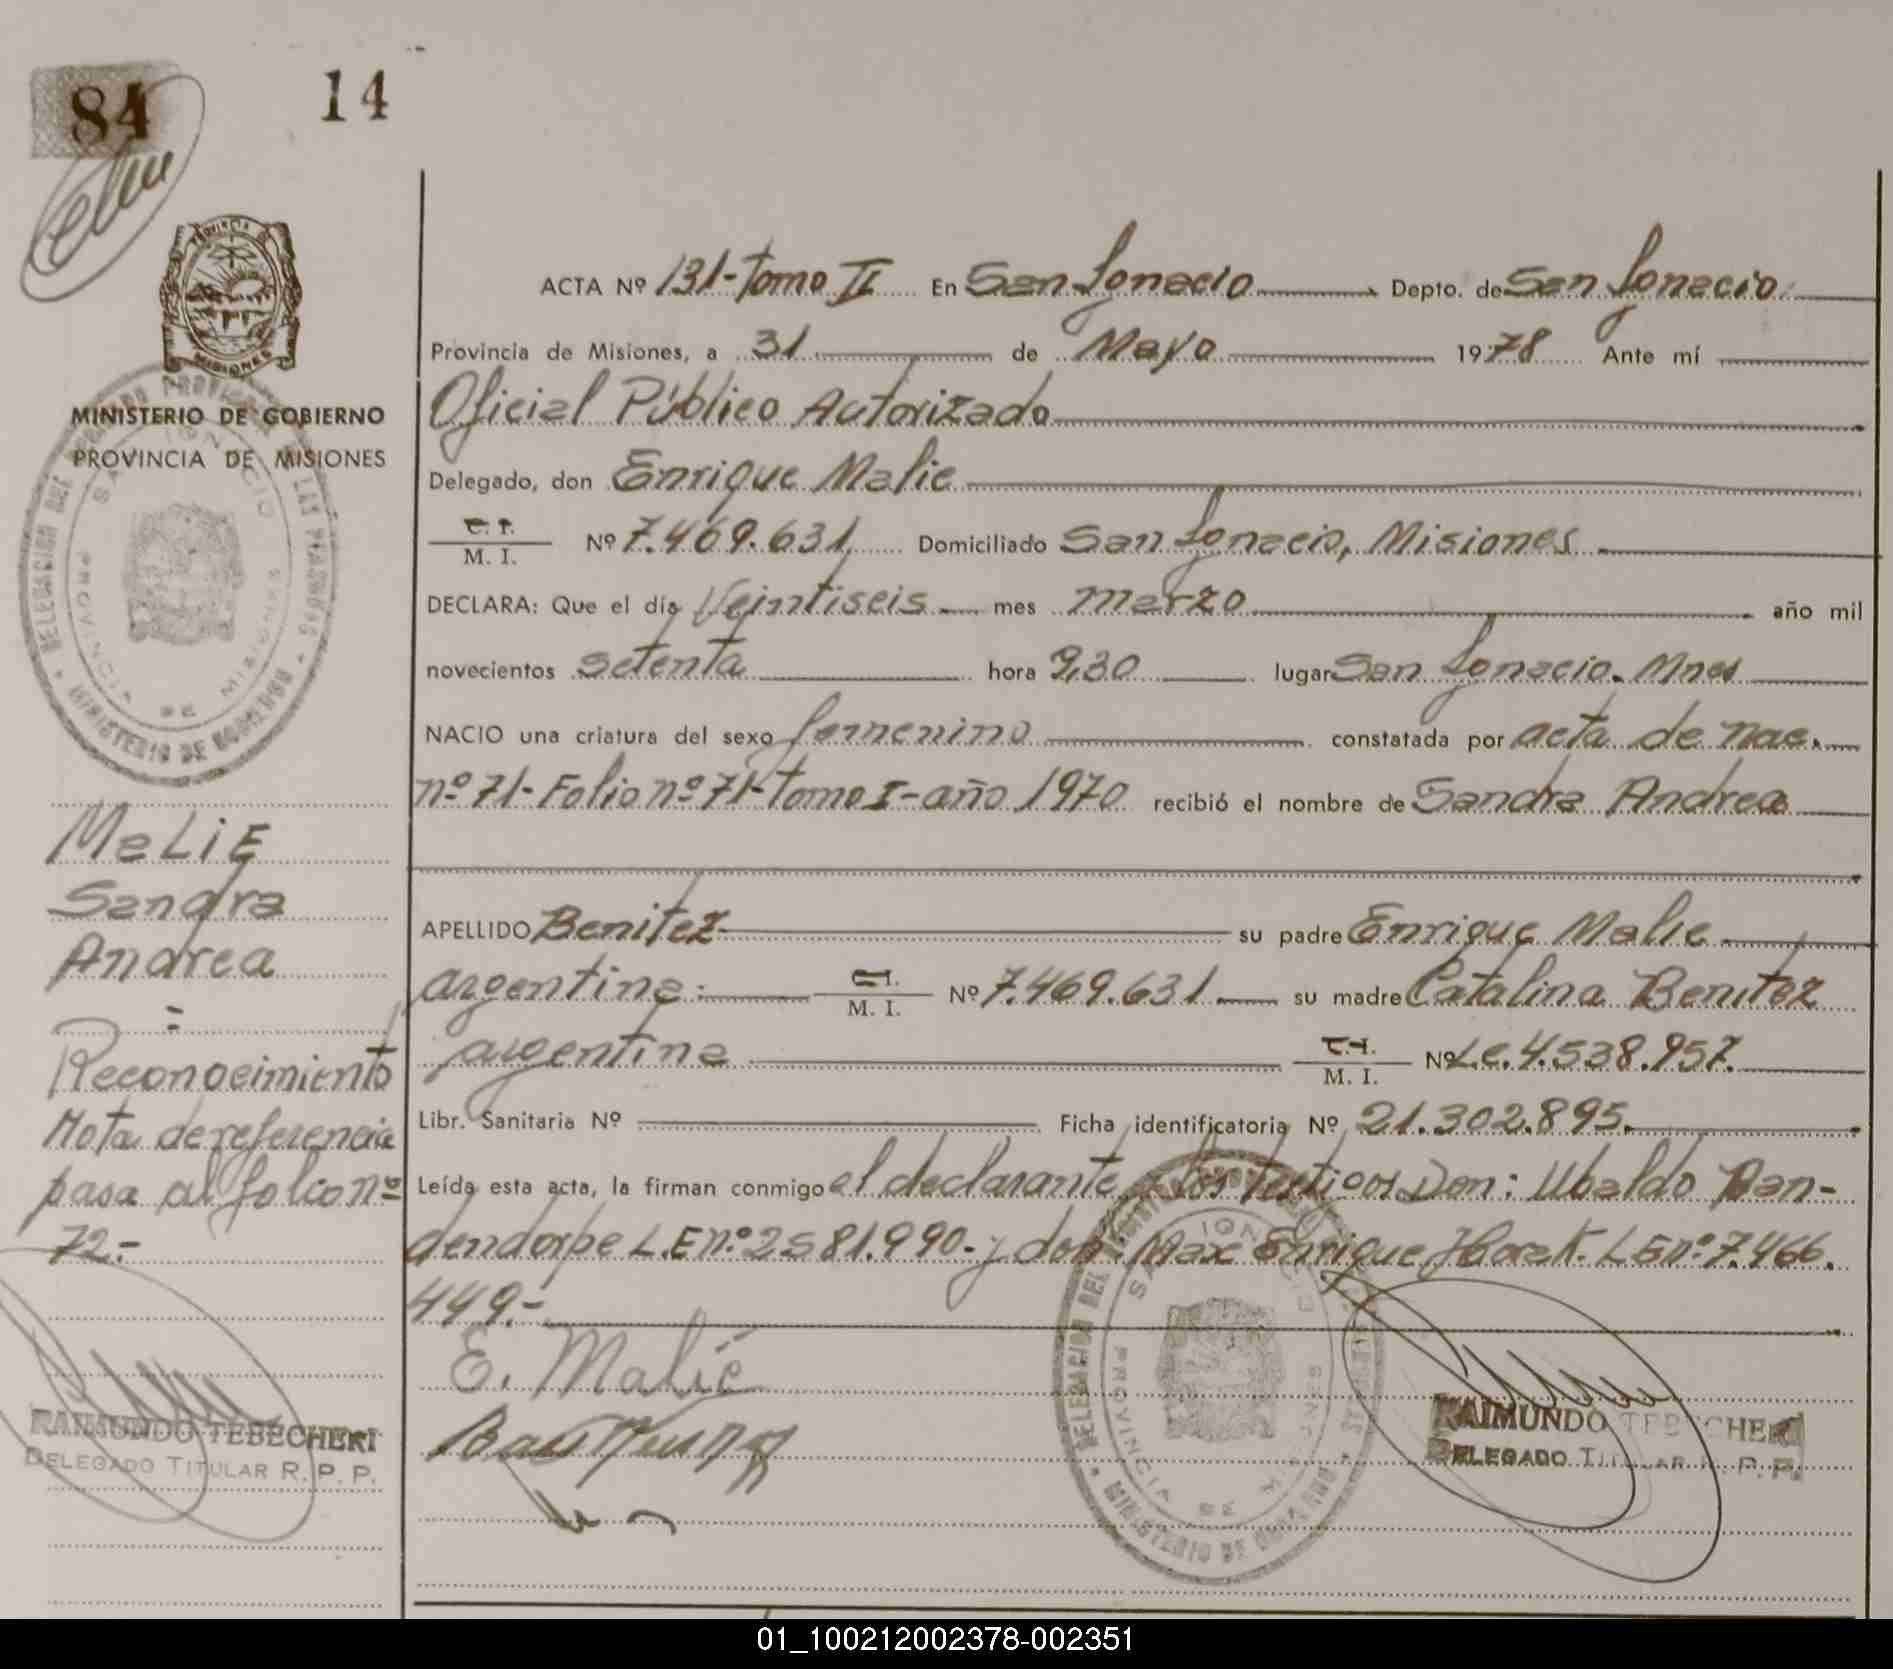 84
14
PROVINCIA DE
MISIONES
MINISTERIO DE GOBIERNO
PROVINCIA DE MISIONES
DELEGACION DEL REGISTRO PROVINCIAL DE LAS PERSONAS
MINISTERIO DE GOBIERNO
SAN IGNACIO
PROVINCIA DE MISIONES
MaLiE
Sandra
Andrea
=
Reconocimiento
Nota de referencia
pasa al folio nº
72.-
RAIMUNDO TEBECHERI
DELEGADO TITULAR R. P. P.
ACTA Nº 131-Tomo II En San Ignacio Depto. de San Ignacio
Provincia de Misiones, a 31 de Mayo 1978 Ante mí
Oficial Público Autorizado
Delegado, don Enrique Malie
C. I.
M. I. Nº 7.469.631 Domiciliado San Ignacio, Misiones
DECLARA: Que el día Veintiseis mes marzo año mil
novecientos setenta hora 9,30 lugar San Ignacio. Mnes
NACIO una criatura del sexo femenino constatada por acta de nac.
nº 71- Folio nº 71- tomo I- año 1970 recibió el nombre de Sandra Andrea
APELLIDO Benitez su padre Enrique Malie
argentina: C. I.
M. I. Nº 7.469.631 su madre Catalina Benitez
argentina C. I.
M. I. Nº L.C. 4.538.957.
Libr. Sanitaria Nº Ficha identificatoria Nº 21.302.895.
Leída esta acta, la firman conmigo el declarante y los testigos Don: Ubaldo Dan-
dendorpe L.E nº 2581.990.- y don Max Enrique L E nº 7.466.
449.-
E. Malié
DELEGACION DEL REGISTRO PROVINCIAL DE LAS PERSONAS
MINISTERIO DE GOBIERNO
SAN IGNACIO
PROVINCIA DE MISIONES
RAIMUNDO TEBECHERI
DELEGADO TITULAR R. P. P.
01_100212002378-002351